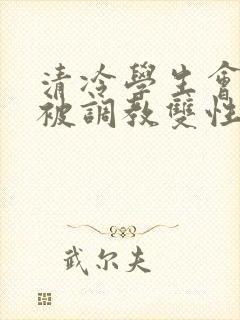 清冷學生會
被調教雙性
武尔夫